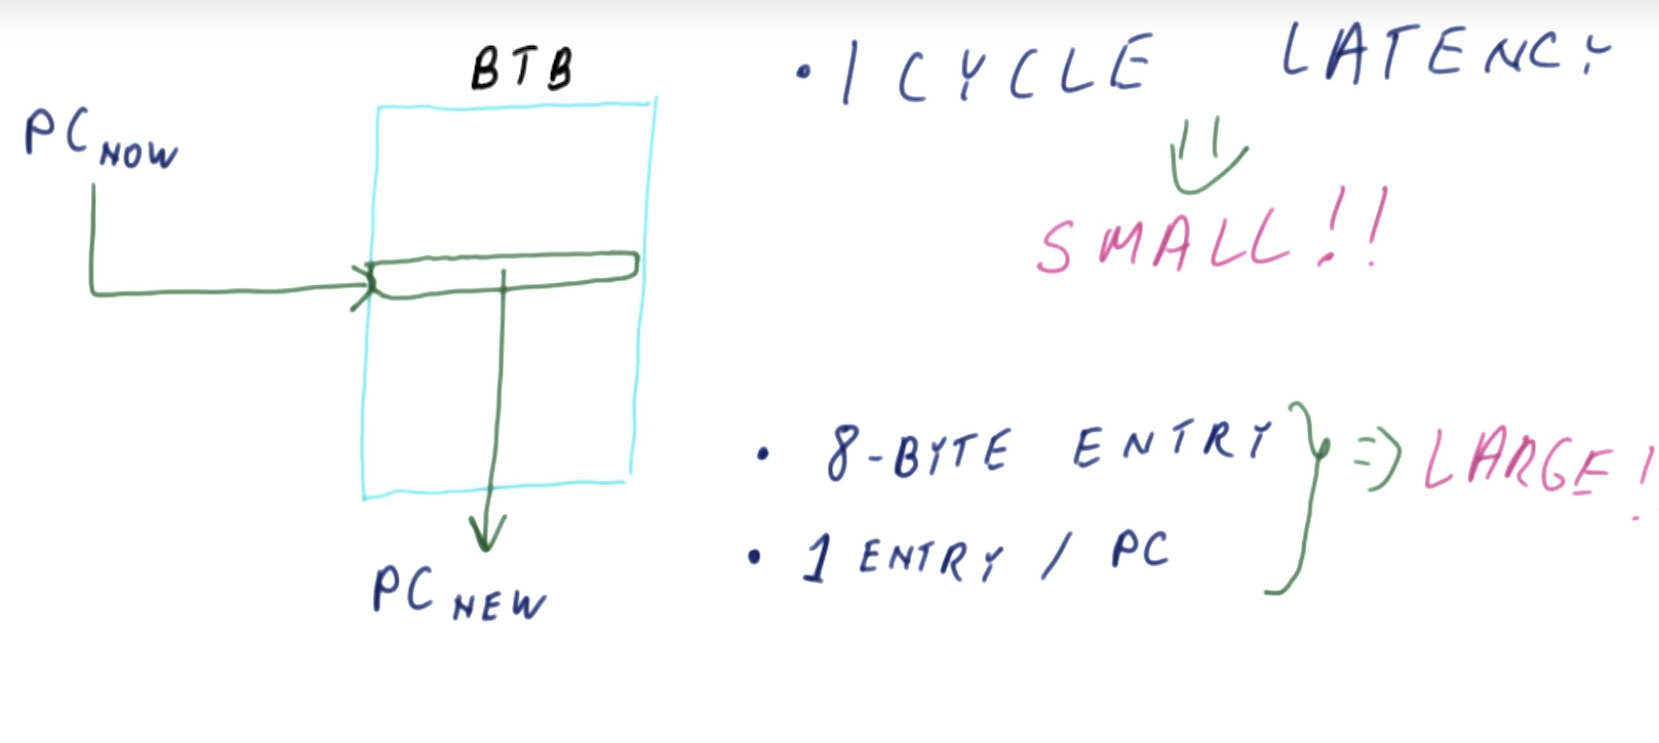 BTB
PC NOW
PC NEW
• 1 CYCLE LATENCY
⇓
SMALL!!
• 8-BYTE ENTRY
• 1 ENTRY / PC
⇒ LARGE!